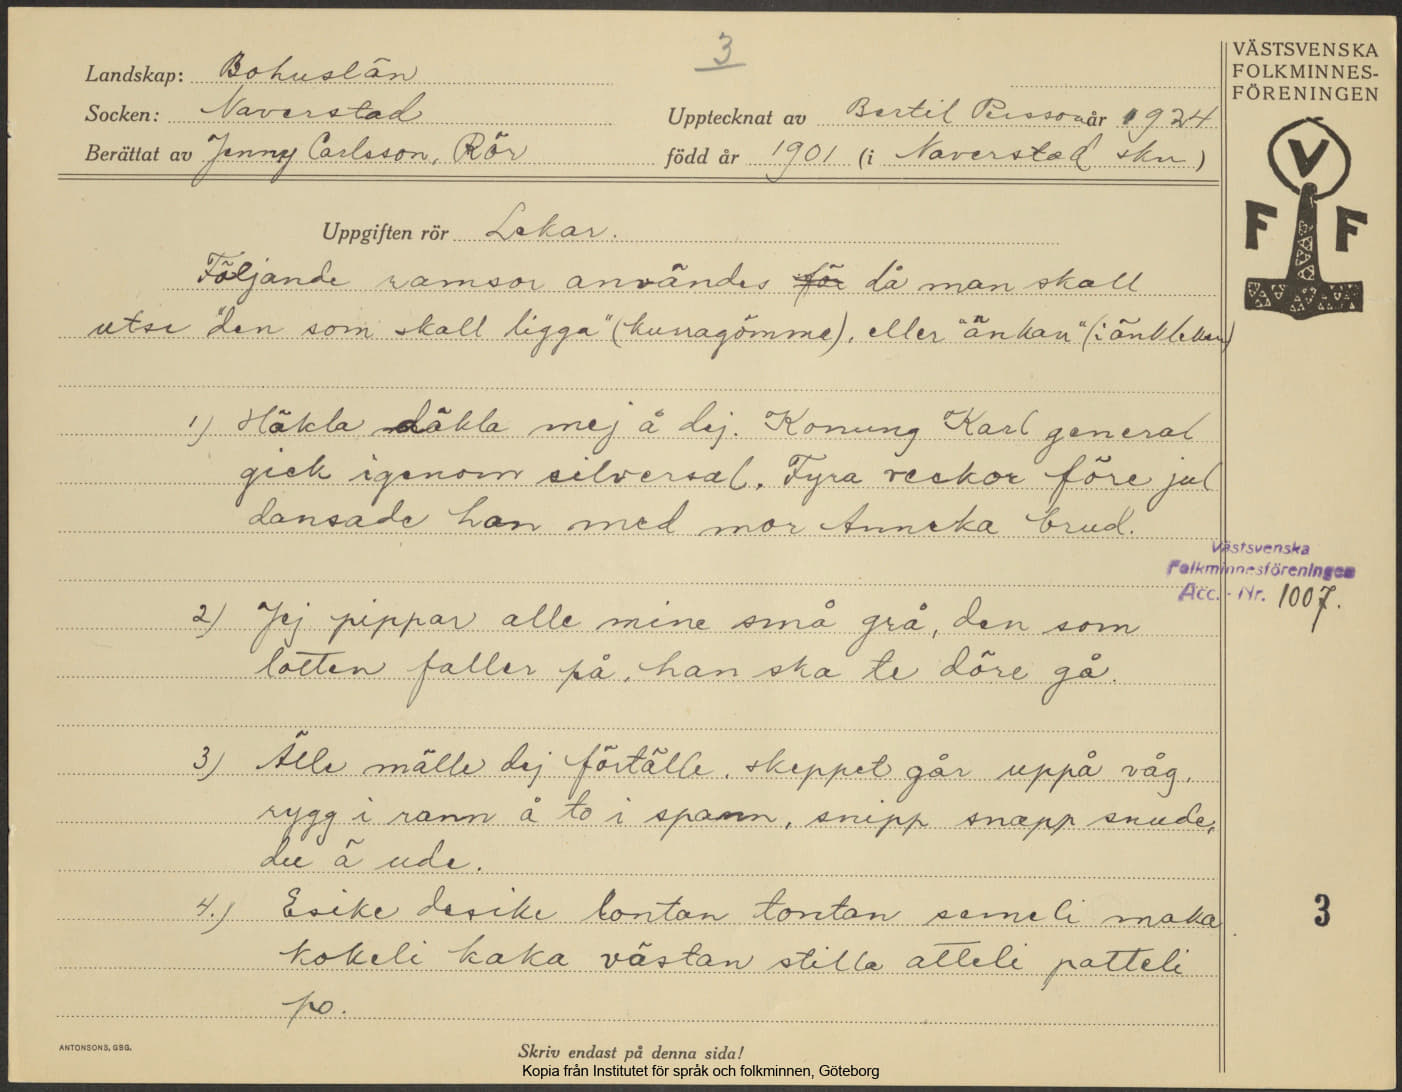 3
Landskap: Bohuslän
Socken: Naverstad
Upptecknat av Bertil Persson år 1924
Berättat av Jenny Carlsson, Rör
född år 1901 (i Naverstad skn)
VÄSTSVENSKA
FOLKMINNES-
FÖRENINGEN
V
F F
Uppgiften rör Lekar.
Följande ramsor användes för då man skall
utse "den som skall ligga" (kurragömme), eller "änkan" (i änkleken)
1) Häkla däkla mej å dej. Konung Karl general
gick igenom silversal. Fyra veckor före jul
dansade han med mor Anneka brud.
Västsvenska
Folkminnesföreningen
Acc. - Nr. 1007.
2) Jej pippar alle mine små grå, den som
lotten faller på, han ska te döre gå.
3) Älle mälle dej förtälle, skeppet går uppå våg,
rygg i rann å to i spann, snipp snapp snude,
du ä ude.
4.) Esike desike lontan tontan semeli maka
kokeli kaka västan stilla atteli patteli
po.
3
ANTONSONS, GBG.
Skriv endast på denna sida!
Kopia från Institutet för språk och folkminnen, Göteborg